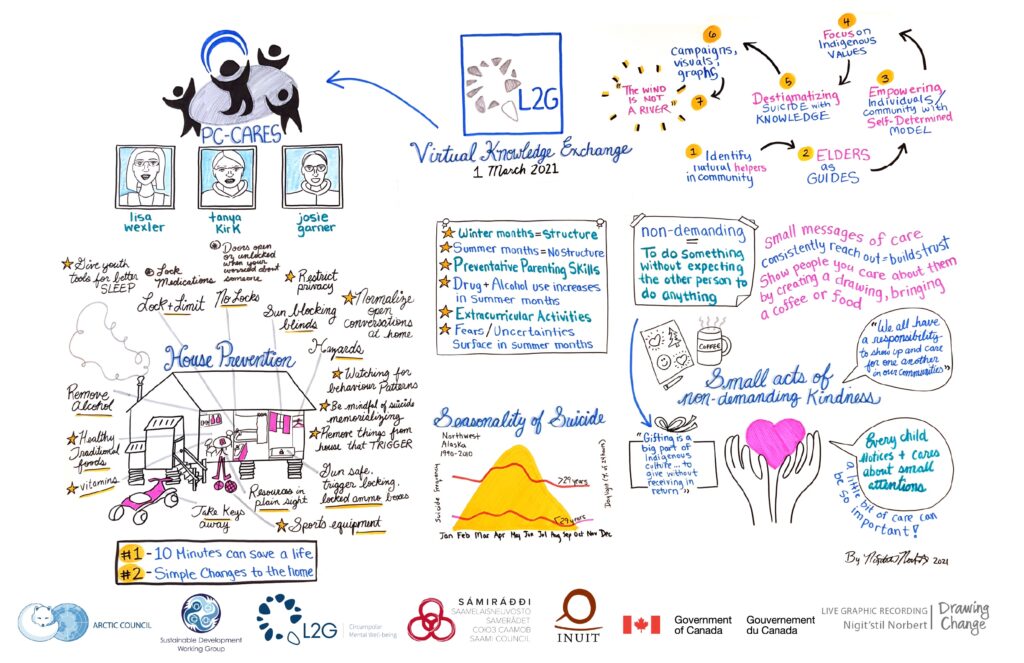 PC-CARES
lisa
wexler
tanya
Kirk
josie
garner
L2G
Virtual Knowledge Exchange
1 March 2021
1
Identify
natural helpers
in community
2
ELDERS
as
GUIDES
3
Empowering
Individuals/
community with
Self-Determined
MODEL
4
Focus on
Indigenous
VALUES
5
Destigmatizing
SUICIDE with
KNOWLEDGE
6
Campaigns,
visuals,
graphs
7
"THE WIND
IS NOT
A RIVER"
Give youth
tools for better
SLEEP
Lock
Medications
Doors open
or unlocked
when your
worried about
someone
Restrict
privacy
Lock + Limit
No Locks
Sun blocking
blinds
Normalize
open
conversations
at home
House Prevention
Hazards
Watching for
behaviour Patterns
Be mindful of suicide
memorializing
Remove things from
house that TRIGGER
Gun safe,
trigger locking,
locked ammo boxes
Remove
Alcohol
Healthy
Traditional
foods
vitamins
Take Keys
away
Resources in
plain sight
Sports equipment
#1 - 10 Minutes can save a life
#2 - Simple Changes to the home
Winter months = Structure
Summer months = No Structure
Preventative Parenting Skills
Drug + Alcohol use increases
in Summer months
Extracurricular Activities
Fears / Uncertainties
Surface in summer months
Seasonality of Suicide
Northwest
Alaska
1990-2010
Suicide Frequency
>29 years
<29 years
Jan Feb Mar Apr May Jun Jul Aug Sep Oct Nov Dec
non-demanding
=
To do something
without expecting
the other person to
do anything
Small messages of care
consistently reach out = builds trust
Show people you care about them
by creating a drawing, bringing
a coffee or food
COFFEE
Small acts of
non-demanding Kindness
"We all have
a responsibility
to show up and care
for one another
in our communities"
"Gifting is a
big part of
Indigenous
culture... to
give without
receiving in
return"
Every child
Notices + cares
about small
attentions
a little bit of care can
be so important!
2021
ARCTIC COUNCIL
Sustainable Development
Working Group
L2G
Circumpolar
Mental Well-being
SÁMIRÁĐĐI
SAAMELAISNEUVOSTO
SAMERÅDET
СОЮЗ СААМОВ
SAAMI COUNCIL
INUIT
Government
of Canada
Gouvernement
du Canada
LIVE GRAPHIC RECORDING
Nigit'stil Norbert
Drawing
Change